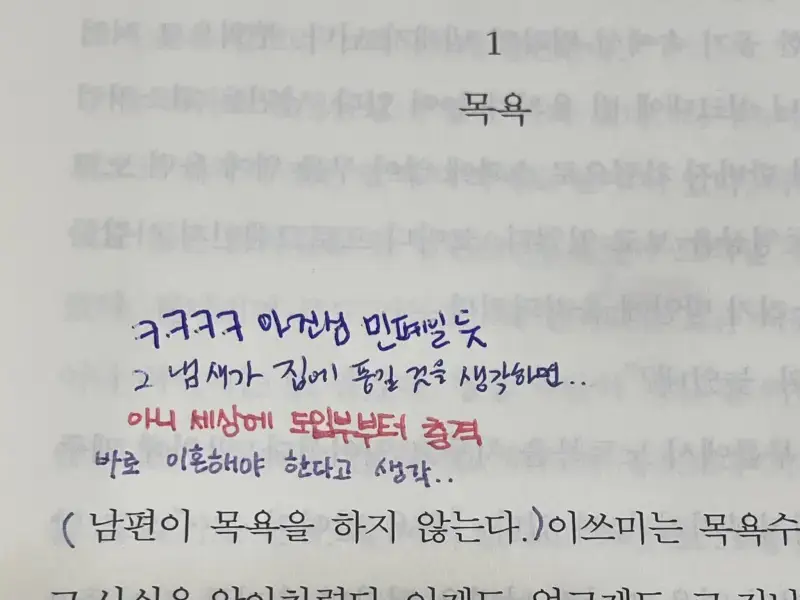 1
목욕
ㅋㅋㅋㅋ 아 건성 민폐일 듯
그 냄새가 집에 풍길 것을 생각하면..
아니 세상에 도입부부터 충격
바로 이혼해야 한다고 생각..
(남편이 목욕을 하지 않는다.) 이쓰미는 목욕수